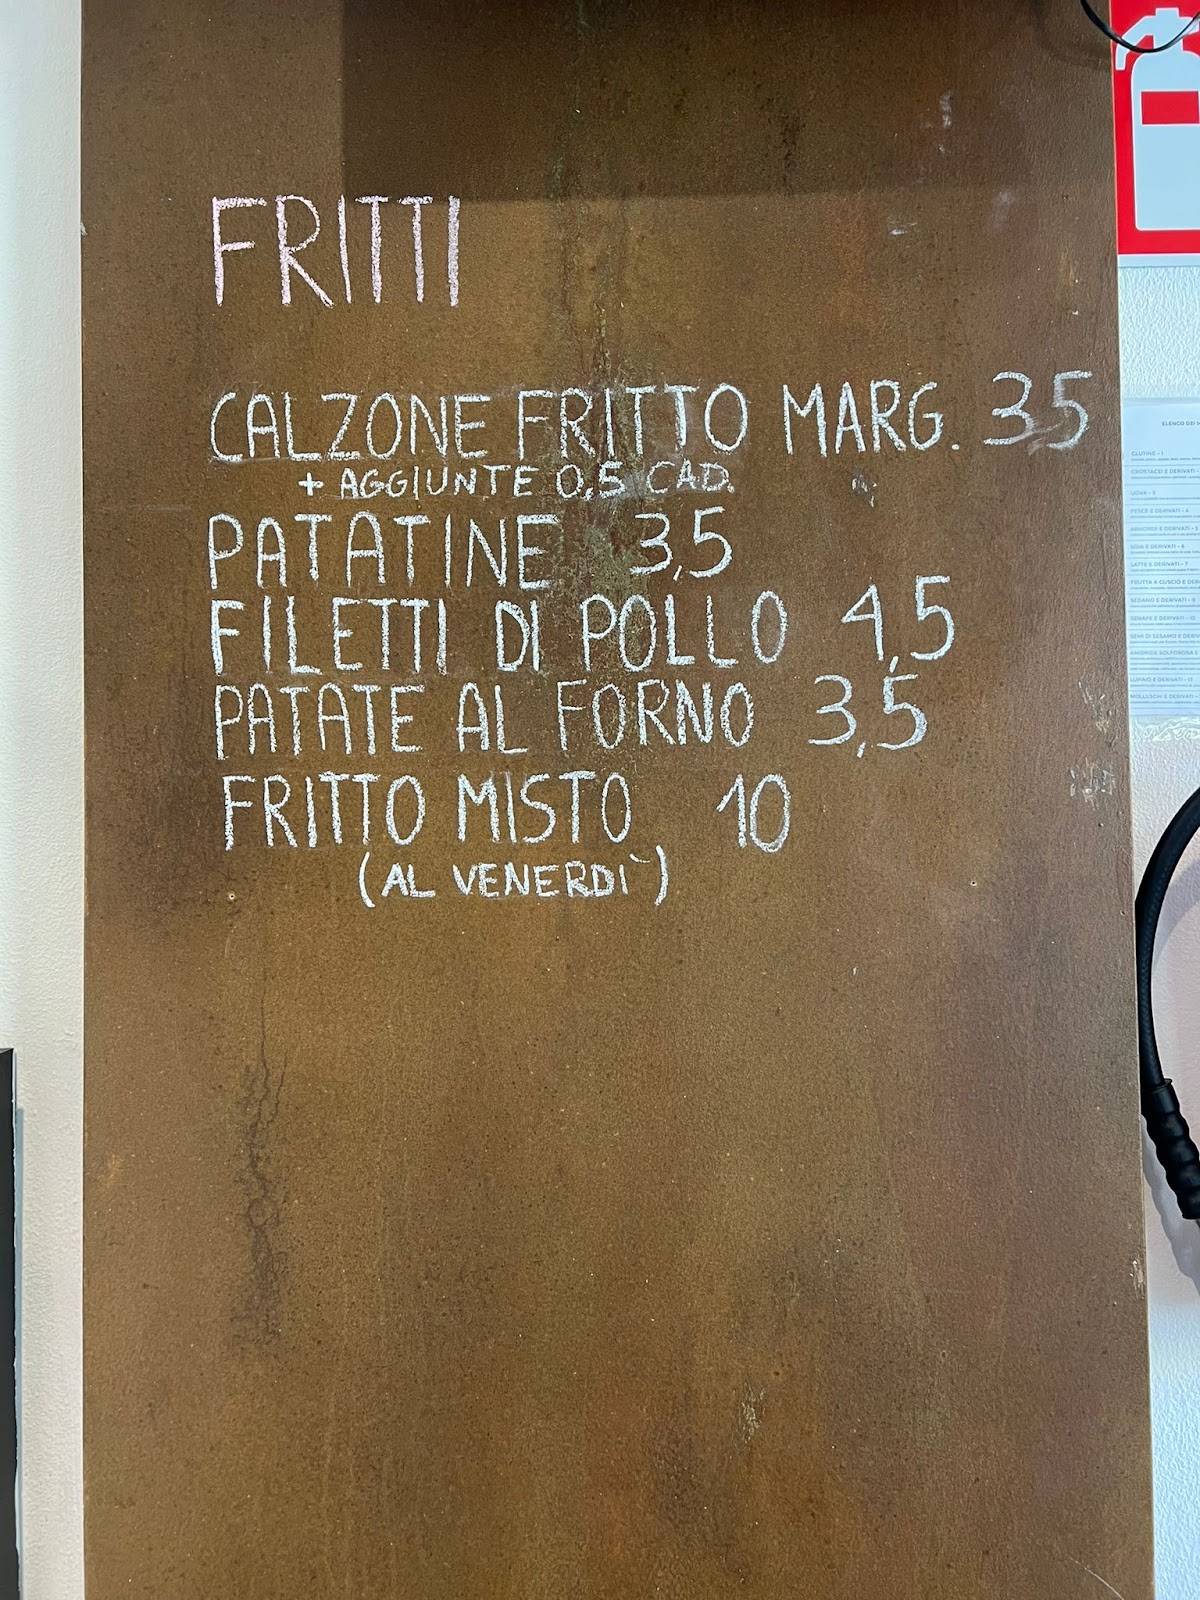 FRITTI
CALZONE FRITTO MARG. 3,5
+ AGGIUNTE 0,5 CAD.
PATATINE 3,5
FILETTI DI POLLO 4,5
PATATE AL FORNO 3,5
FRITTO MISTO 10
(AL VENERDÌ)
GLUTINE - 1
CROSTACEI E DERIVATI -
UOVA - 3
PESCE E DERIVATI - 4
ARACHIDI E DERIVATI - 5
SOIA E DERIVATI - 6
LATTE E DERIVATI - 7
FRUTTA A GUSCIO E DER
SEDANO E DERIVATI - 9
SENAPE E DERIVATI - 10
SEMI DI SESAMO E DERIV
ANIDRIDE SOLFOROSA E
LUPINO E DERIVATI - 13
MOLLUSCHI E DERIVATI -